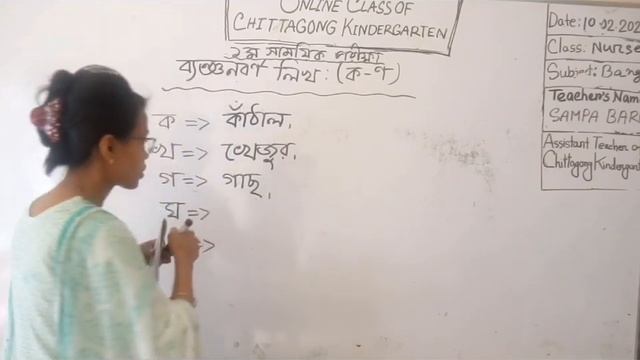 ONLINE CLASS OF
CHITTAGONG KINDERGARTEN
২য় সাময়িক পরীক্ষা
ব্যঞ্জনবর্ণ লিখ : (ক-ণ)
ক => কাঁঠাল,
খ => খেজুর,
গ => গাছ,
ঘ =>
=>
Date: 10.02.202
Class: Nurse
Subject: Bang
Teacher's Nam
SAMPA BAR
Assistant Teacher o
Chittagong Kindergart